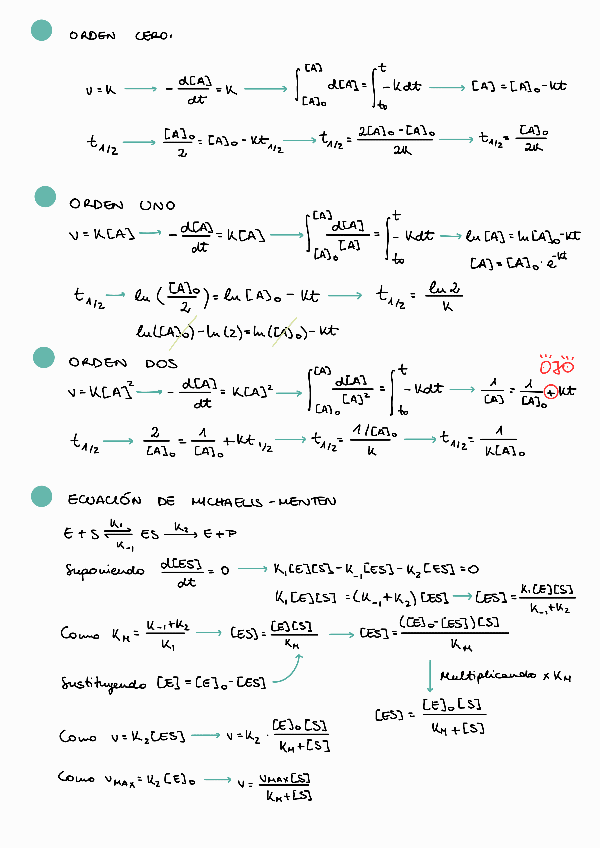 ORDEN CERO.
v = K → - d[A]/dt = K → ∫_{[A]₀}^{[A]} d[A] = ∫_{t₀}^{t} -Kdt → [A] = [A]₀ - Kt
t₁/₂ → [A]₀/2 = [A]₀ - Kt₁/₂ → t₁/₂ = 2[A]₀ - [A]₀/2K → t₁/₂ = [A]₀/2K
ORDEN UNO
v = K[A] → - d[A]/dt = K[A] → ∫_{[A]₀}^{[A]} d[A]/[A] = ∫_{t₀}^{t} -Kdt → ln[A] = ln[A]₀ - Kt
[A] = [A]₀ · e^{-Kt}
t₁/₂ → ln([A]₀/2) = ln[A]₀ - Kt → t₁/₂ = ln2/K
ln([A]₀) - ln(2) = ln([A]₀) - Kt
ORDEN DOS
OJO
v = K[A]² → - d[A]/dt = K[A]² → ∫_{[A]₀}^{[A]} d[A]/[A]² = ∫_{t₀}^{t} -Kdt → 1/[A] = 1/[A]₀ + Kt
t₁/₂ → 2/[A]₀ = 1/[A]₀ + Kt₁/₂ → t₁/₂ = 1/[A]₀/K → t₁/₂ = 1/K[A]₀
ECUACIÓN DE MICHAELIS-MENTEN
E + S ⇌ ES → E + P (K₁, K₋₁, K₂)
Suponiendo d[ES]/dt = 0 → K₁[E][S] - K₋₁[ES] - K₂[ES] = 0
K₁[E][S] = (K₋₁ + K₂)[ES] → [ES] = K₁[E][S]/K₋₁+K₂
Como K_M = K₋₁+K₂/K₁ → [ES] = [E][S]/K_M → [ES] = ([E]₀-[ES])[S]/K_M
Sustituyendo [E] = [E]₀ - [ES]
Multiplicando x K_M
[ES] = [E]₀[S]/K_M+[S]
Como v = K₂[ES] → v = K₂ · [E]₀[S]/K_M+[S]
Como v_MAX = K₂[E]₀ → v = v_MAX[S]/K_M+[S]